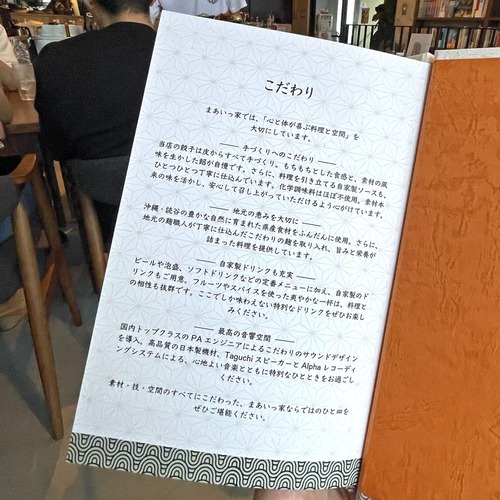 こだわり
まあいっ家では、「心と体が喜ぶ料理と空間」を
大切にしています。
手づくりへのこだわり
当店の餃子は皮からすべて手づくり。もちもちとした食感と、素材の風
味を生かした餡が自慢です。さらに、料理を引き立てる自家製ソースも、
ひとつひとつ丁寧に仕込んでいます。化学調味料はほぼ不使用。素材本
来の味を活かし、安心して召し上がっていただけるよう心がけています。
地元の恵みを大切に
沖縄・読谷の豊かな自然に育まれた県産食材をふんだんに使用。さらに、
地元の麹職人が丁寧に仕込んだこだわりの麹を取り入れ、旨みと栄養が
詰まった料理を提供しています。
自家製ドリンクも充実
ビールや泡盛、ソフトドリンクなどの定番メニューに加え、自家製のド
リンクもご用意。フルーツやスパイスを使った爽やかな一杯は、料理と
の相性も抜群です。ここでしか味わえない特別なドリンクをぜひお楽し
みください。
最高の音響空間
国内トップクラスの PA エンジニアによるこだわりのサウンドデザイン
を導入。高品質の日本製機材、Taguchi スピーカーと Alpha レコーディ
ングシステムによる、心地よい音楽とともに特別なひとときをお過ごし
ください。
素材・技・空間のすべてにこだわった、まあいっ家ならではのひと皿を
ぜひご堪能ください。